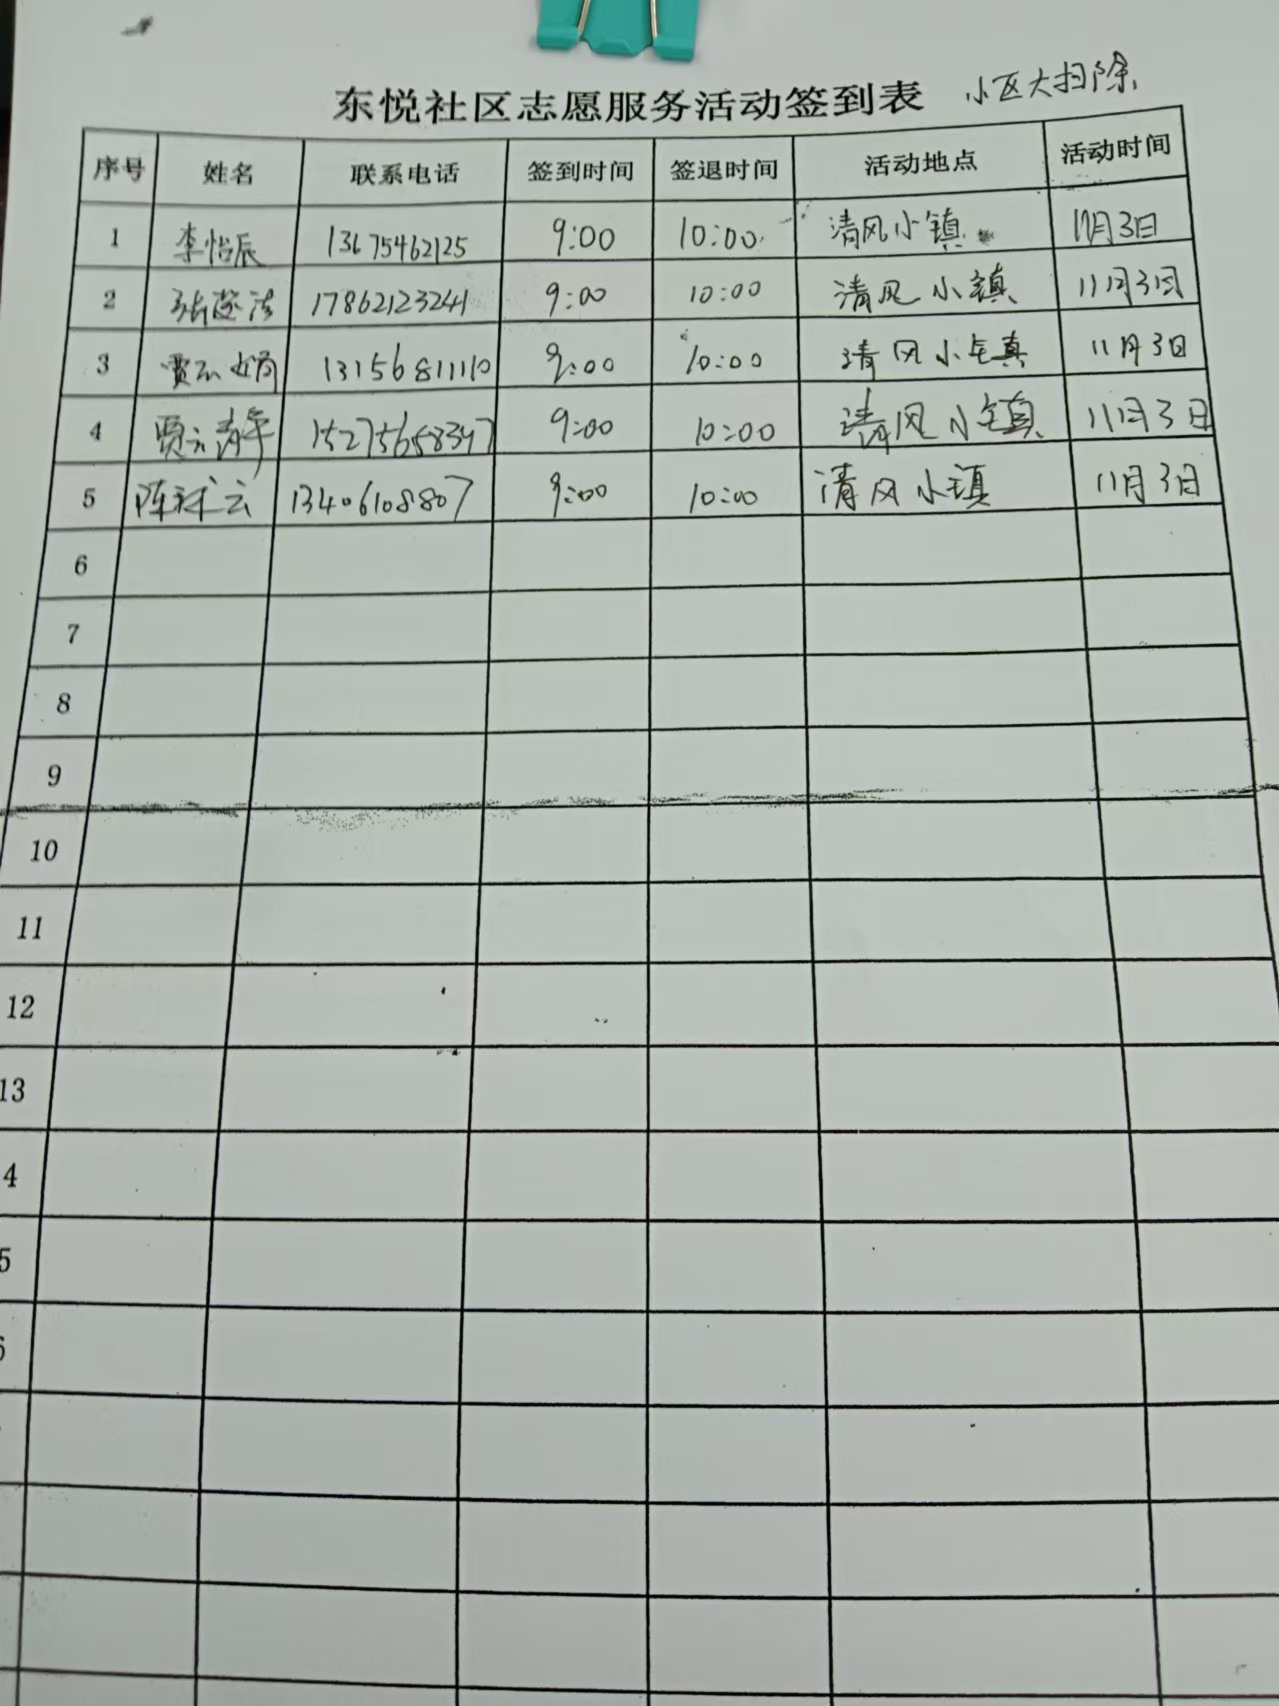 东悦社区志愿服务活动签到表 小区大扫除
序号 姓名 联系电话 签到时间 签退时间 活动地点 活动时间
1 李怡辰 13675462125 9:00 10:00 清风小镇 11月3日
2 17862123241 9:00 10:00 清风小镇 11月3日
3 13156811110 9:00 10:00 清风小镇 11月3日
4 贾云静 15275658347 9:00 10:00 清风小镇 11月3日
5 陈秫云 13406108807 9:00 10:00 清风小镇 11月3日
6
7
8
9
10
11
12
13
4
5